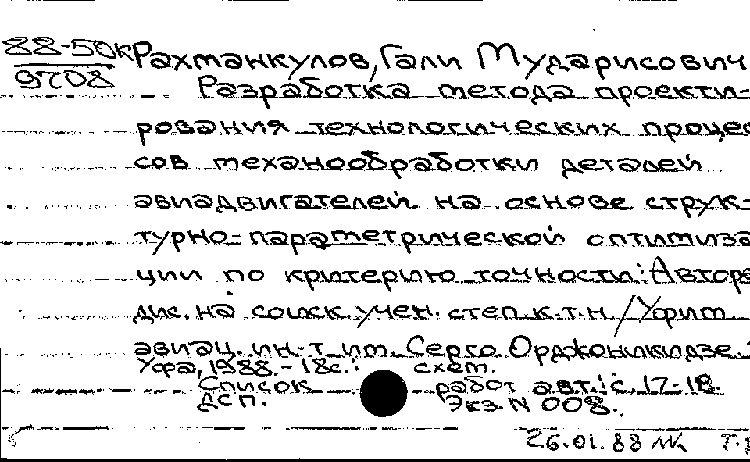 88-50к Рахманкулов, Гали Мударисович
9708 Разработка метода проекти-
рования технологических процес
сов механообработки деталей
авиадвигателей на основе струк-
турно-параметрической оптимиза
ции по критерию точности: Авторе
дис. на соиск. учен. степ. к.т.н. / Уфим
авиац. ин-т им. Серго Орджоникидзе.
Уфа, 1988. - 18с.: схем.
Список работ авт.: с. 17-18.
ДСП. Экз. N 008.
26.01.88